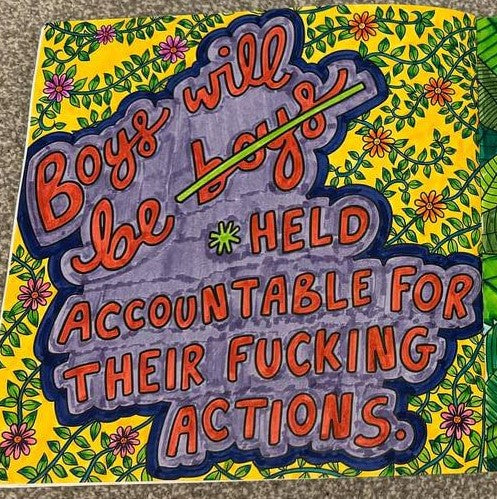 Boys will
be boys
*HELD
ACCOUNTABLE FOR
THEIR FUCKING
ACTIONS.